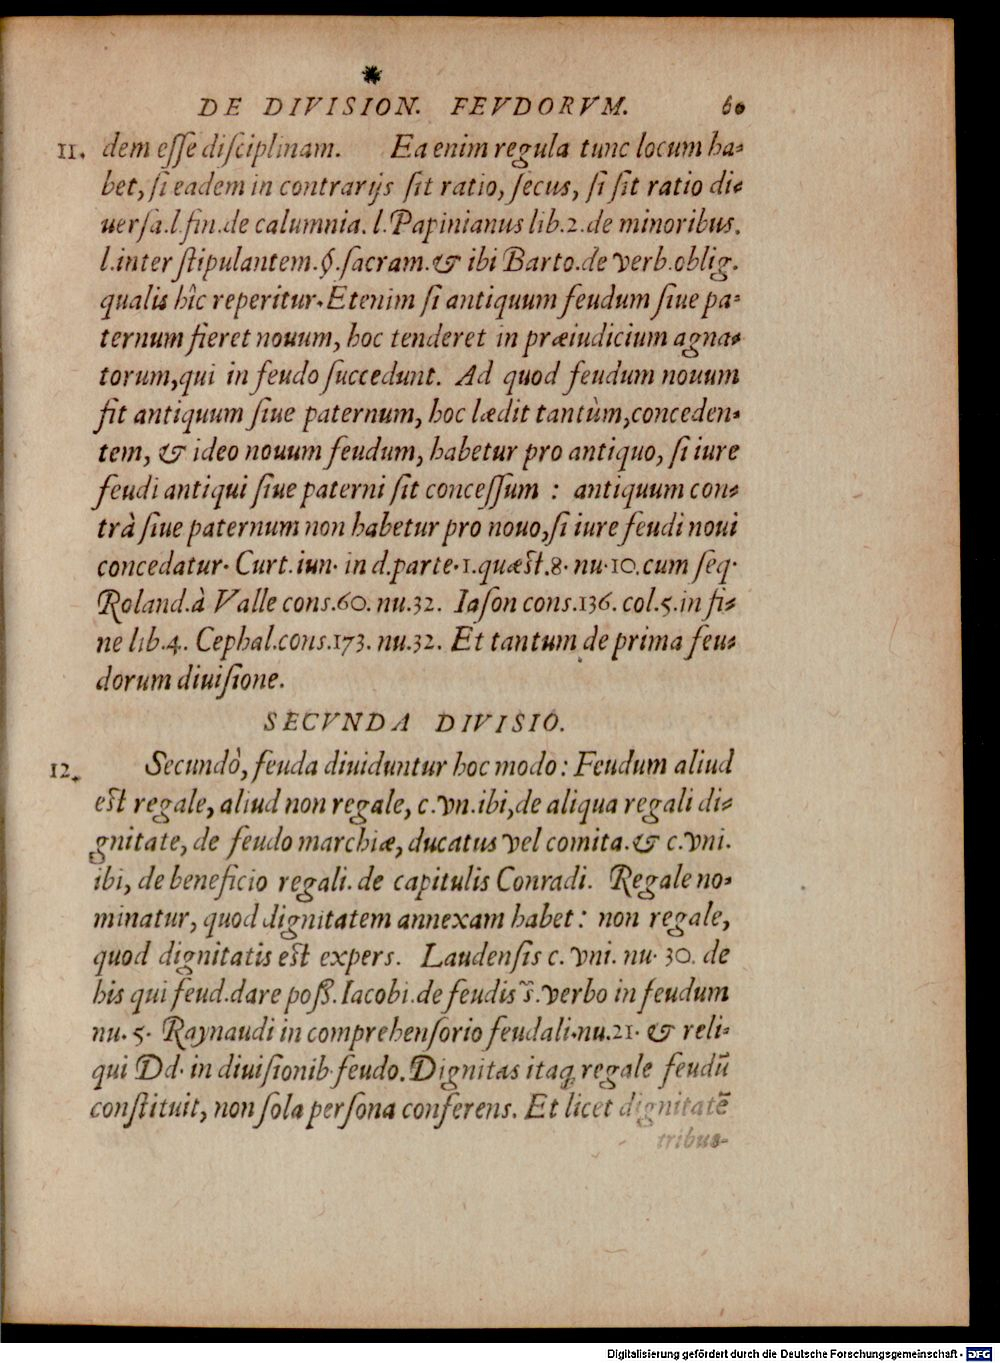 DE DIVISION. FEVDORVM. 60
11. dem eſſe diſciplinam. Ea enim regula tunc locum ha-
bet, ſi eadem in contrarijs ſit ratio, ſecus, ſi ſit ratio di-
uerſa.l.fin.de calumnia. l.Papinianus lib.2.de minoribus.
l.inter ſtipulantem.§.ſacram.& ibi Barto.de verb.oblig.
qualis hîc reperitur. Etenim ſi antiquum feudum ſiue pa-
ternum fieret nouum, hoc tenderet in præiudicium agna-
torum,qui in feudo ſuccedunt. Ad quod feudum nouum
fit antiquum ſiue paternum, hoc lædit tantùm,conceden-
tem, & ideo nouum feudum, habetur pro antiquo, ſi iure
feudi antiqui ſiue paterni ſit conceſſum : antiquum con-
trà ſiue paternum non habetur pro nouo,ſi iure feudi noui
concedatur. Curt.iun. in d.parte.1.quæst.8. nu.10.cum ſeq.
Roland.à Valle cons.60. nu.32. Iaſon cons.136. col.5.in fi-
ne lib.4. Cephal.cons.173. nu.32. Et tantum de prima feu-
dorum diuiſione.
SECVNDA DIVISIO.
12. Secundò, feuda diuiduntur hoc modo: Feudum aliud
est regale, aliud non regale, c.vn.ibi,de aliqua regali di-
gnitate, de feudo marchiæ, ducatus vel comita.& c.vni.
ibi, de beneficio regali. de capitulis Conradi. Regale no-
minatur, quod dignitatem annexam habet: non regale,
quod dignitatis est expers. Laudenſis c. vni. nu. 30. de
his qui feud.dare poß.Iacobi.de feudis s̃.verbo in feudum
nu. 5. Raynaudi in comprehenſorio feudali.nu.21. & reli-
qui Dd. in diuiſionib.feudo.Dignitas itaq; regale feudũ
conſtituit, non ſola perſona conferens. Et licet dignitatẽ
tribua-
Digitalisierung gefördert durch die Deutsche Forschungsgemeinschaft - DFG